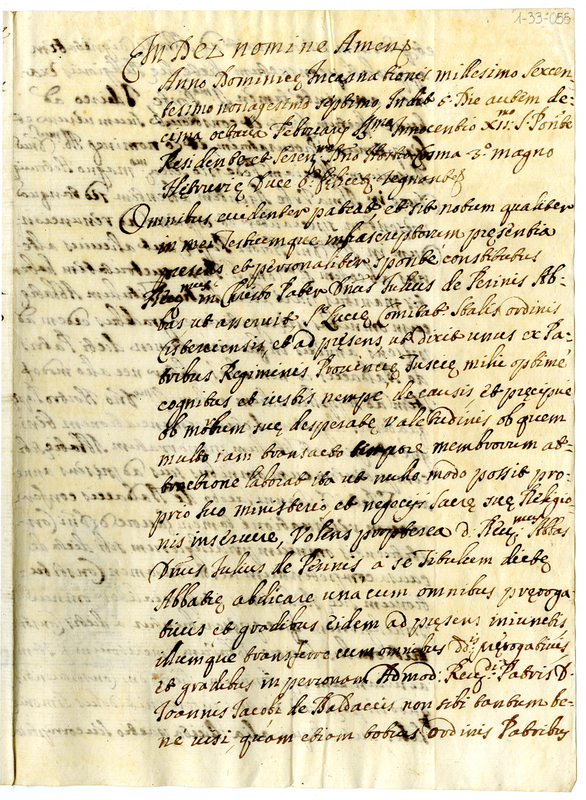 1-33-055
In Dei nomine Amen
Anno Dominicę Incarnationis millesimo sexcen
tesimo nonagesimo septimo Indit 6 Die autem de-
cima octava Februarij Innocentio XII S. Pontce
Residente et Seren Dno Cosmo 3º magno
Hetrurię Duce feliciter regnante
Omnibus evidenter pateat, et sit notum qualiter
in mei Testiumque infrascriptorum presentia
presens et personaliter sponte constitutus
Rev.mus in Christo Pater Dnus Iulius de Perinis Ab-
bas ut asseruit Lucię Comitat. ordinis
Cisterciensis, et ad presens ut dixit unus ex Pa-
tribus Regiminis Provincię Tuscię mihi optimè
cognitus et iustis nempè de causis et precipuè
ob motum suę desperatę valetudinis ob quem
multo iam transacto tempore membrorum at-
tractione laborat ita ut nullo modo possit pro-
prio suo ministerio, et negocijs Sacrę suę Religio-
nis inservire, Volens propterea d. Rev.mus Abbas
Dnus Iulius de Perinis a se titulum dictę
Abbatię abdicare una cum omnibus pręroga-
tivis et gradibus eidem ad presens iniunctis
illumque transferre cum omnibus dd.is prerogativis
et gradibus in personam Admod. Rev.di Patris D.
Ioannis Iacobi de Baldaccis non sibi tantum be-
ne visi quàm etiam totius ordinis Patribus